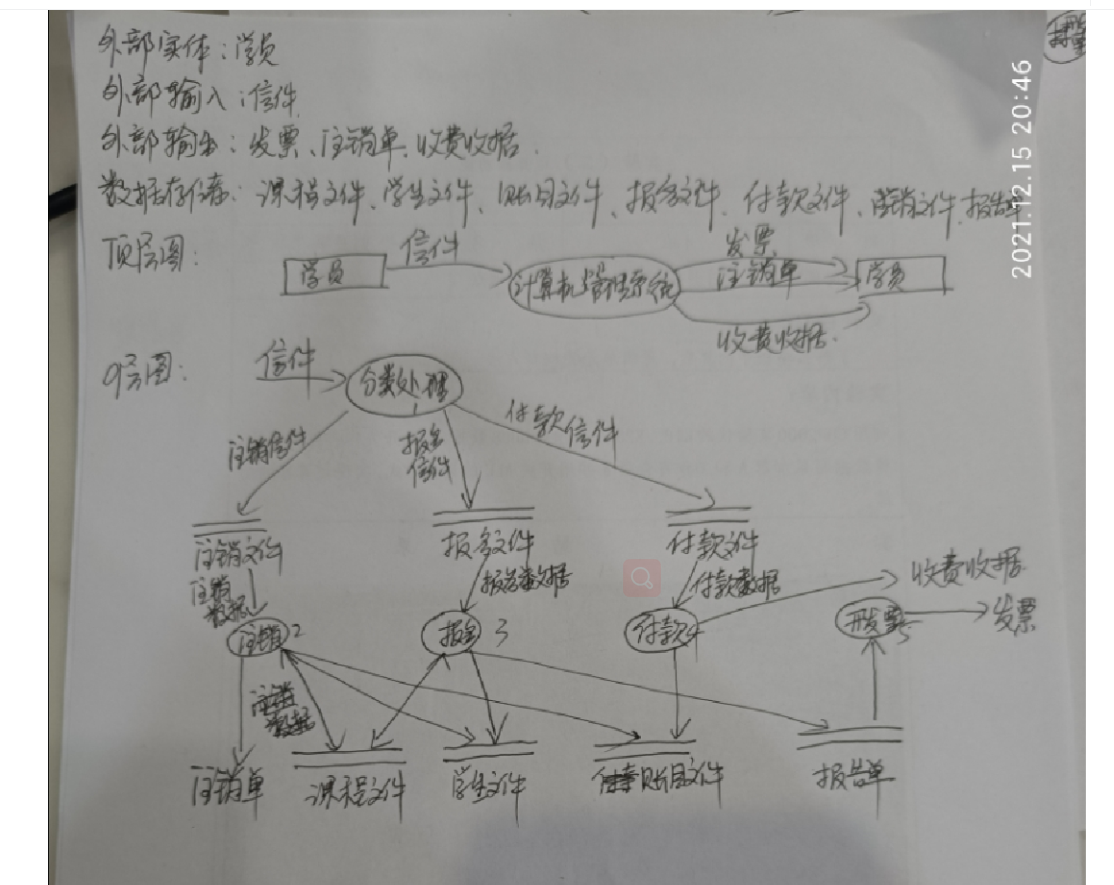 外部实体：学员
外部输入：信件
外部输出：发票、注销单、收费收据.
数据存储：课程文件、学生文件、账目文件、报名文件、付款文件、注销文件、报告单
2021.12.15 20:46
顶层图：
学员
信件
计算机管理系统
发票
注销单
收费收据.
学员
0层图：
信件
分类处理
1
注销信件
报名
信件
付款信件
注销文件
报名文件
付款文件
注销
数据
报名数据
付款数据
收费收据.
注销 2
报名 3
付款 4
开发票 5
发票
注销
数据
注销单
课程文件
学生文件
账目文件
报告单